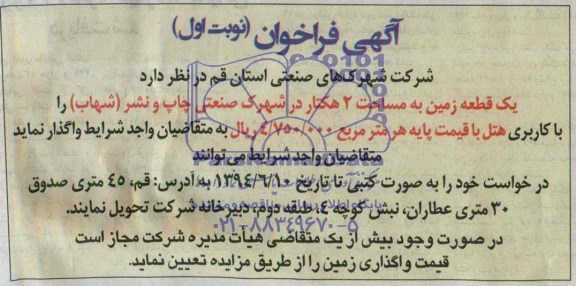 آگهی فراخوان (نوبت اول)
شرکت شهرک‌های صنعتی استان قم در نظر دارد
یک قطعه زمین به مساحت ۲ هکتار در شهرک صنعتی چاپ و نشر (شهاب) را
با کاربری هتل با قیمت پایه هر متر مربع ۴/۷۵۰/۰۰۰ ریال به متقاضیان واجد شرایط واگذار نماید
متقاضیان واجد شرایط می توانند
در خواست خود را به صورت کتبی تا تاریخ ۱۳۹۴/۶/۱۰ به آدرس: قم، ۴۵ متری صدوق
۳۰ متری عطاران، نبش کوچه ۴، طبقه دوم، دبیر خانه شرکت تحویل نمایند.
۰۲۱-۸۸۳۴۹۶۷۰-۵
در صورت وجود بیش از یک متقاضی هیأت مدیره شرکت مجاز است
قیمت واگذاری زمین را از طریق مزایده تعیین نماید.